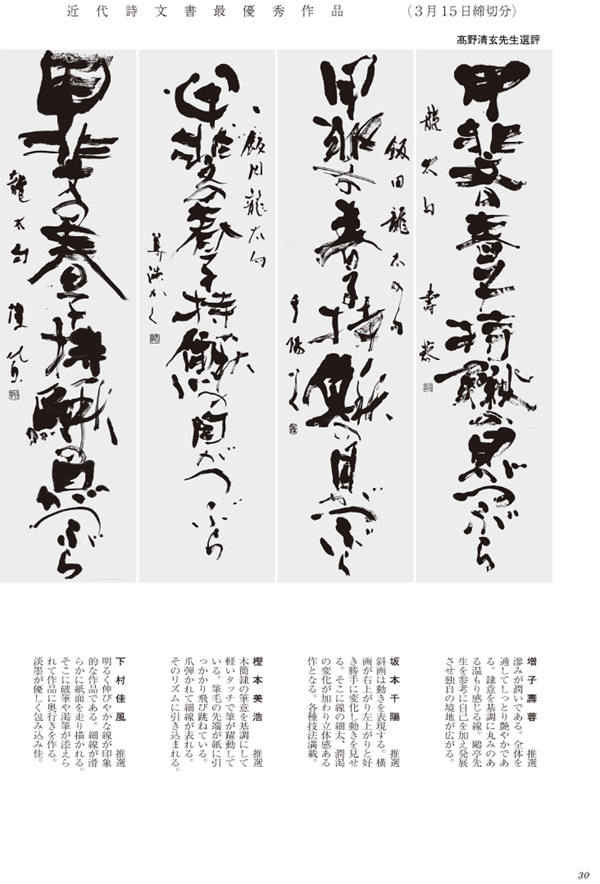 近代詩文書最優秀作品
（3月15日締切分）
髙野清玄先生選評
甲斐の春子持鰍の目がつぶら
龍太句
甲斐の春子持鰍の目がつぶら
飯田龍太の句
千陽かく
甲斐の春子持鰍の目がつぶら
飯田龍太句
美浩かく
甲斐の春子持鰍の目がつぶら
龍太句
増子壽蓉 推選
滲みが潤いである。全体を
通してしっとり艶やかであ
る。隷意を基調に丸みのあ
る温もり感じる線。鷗亭先
生を参考に自己を加え発展
させ独自の境地が広がる。
坂本千陽 推選
斜画は動きを表現する。横
画が右上がり左上がりと好
き勝手に変化し動きを見せ
る。そこに線の細太、潤渇
の変化が加わり立体感ある
作となる。各種技法満載。
樫本美浩 推選
木簡隷の筆意を基調にして
軽いタッチで筆が躍動して
いる。筆毛の先端が紙に引
っかかり飛び跳ねている。
爪弾かれて細線が表れる。
そのリズムに引き込まれる。
下村佳風 推選
明るく伸びやかな線が印象
的な作品である。細線が滑
らかに紙面を走り描かれる。
そこに破筆や渇筆が添えら
れて作品に奥行きを作る。
淡墨が優しく包み込み佳。
30